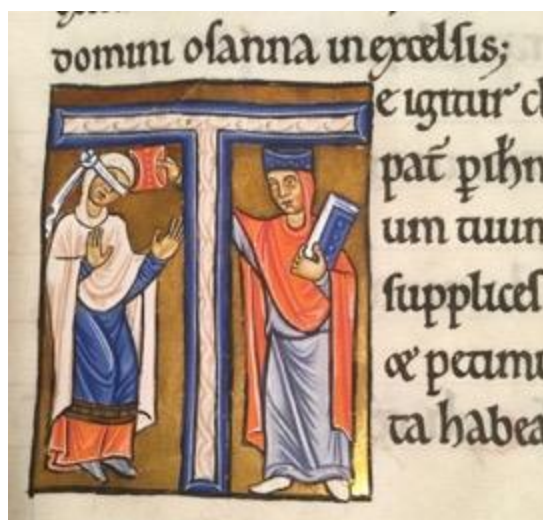 domini osanna in excelsis;
Te igitur cl
pat̄ ꝑ ih̄m
um tuum
supplices
ac petimu
ta habea